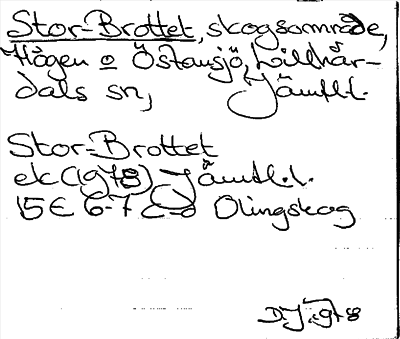 Stor-Brottet, skogsområde,
Hågen o Östansjö, Lillhär-
dals sn, Jämtl.l.
Stor-Brottet
ek (1978) Jämtl.l.
15E 6-7 c-d Olingskog
D.J. 1978